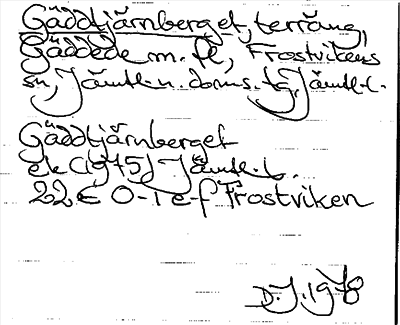 Gäddtjärnberget, terräng,
Gäddede m. fl., Frostvikens
sn, Jämtl. n. doms. tg, Jämtl. l.
Gäddtjärnberget
ek (1975) Jämtl. l.
22 E 0-1 e-f Frostviken
D. J. 1978